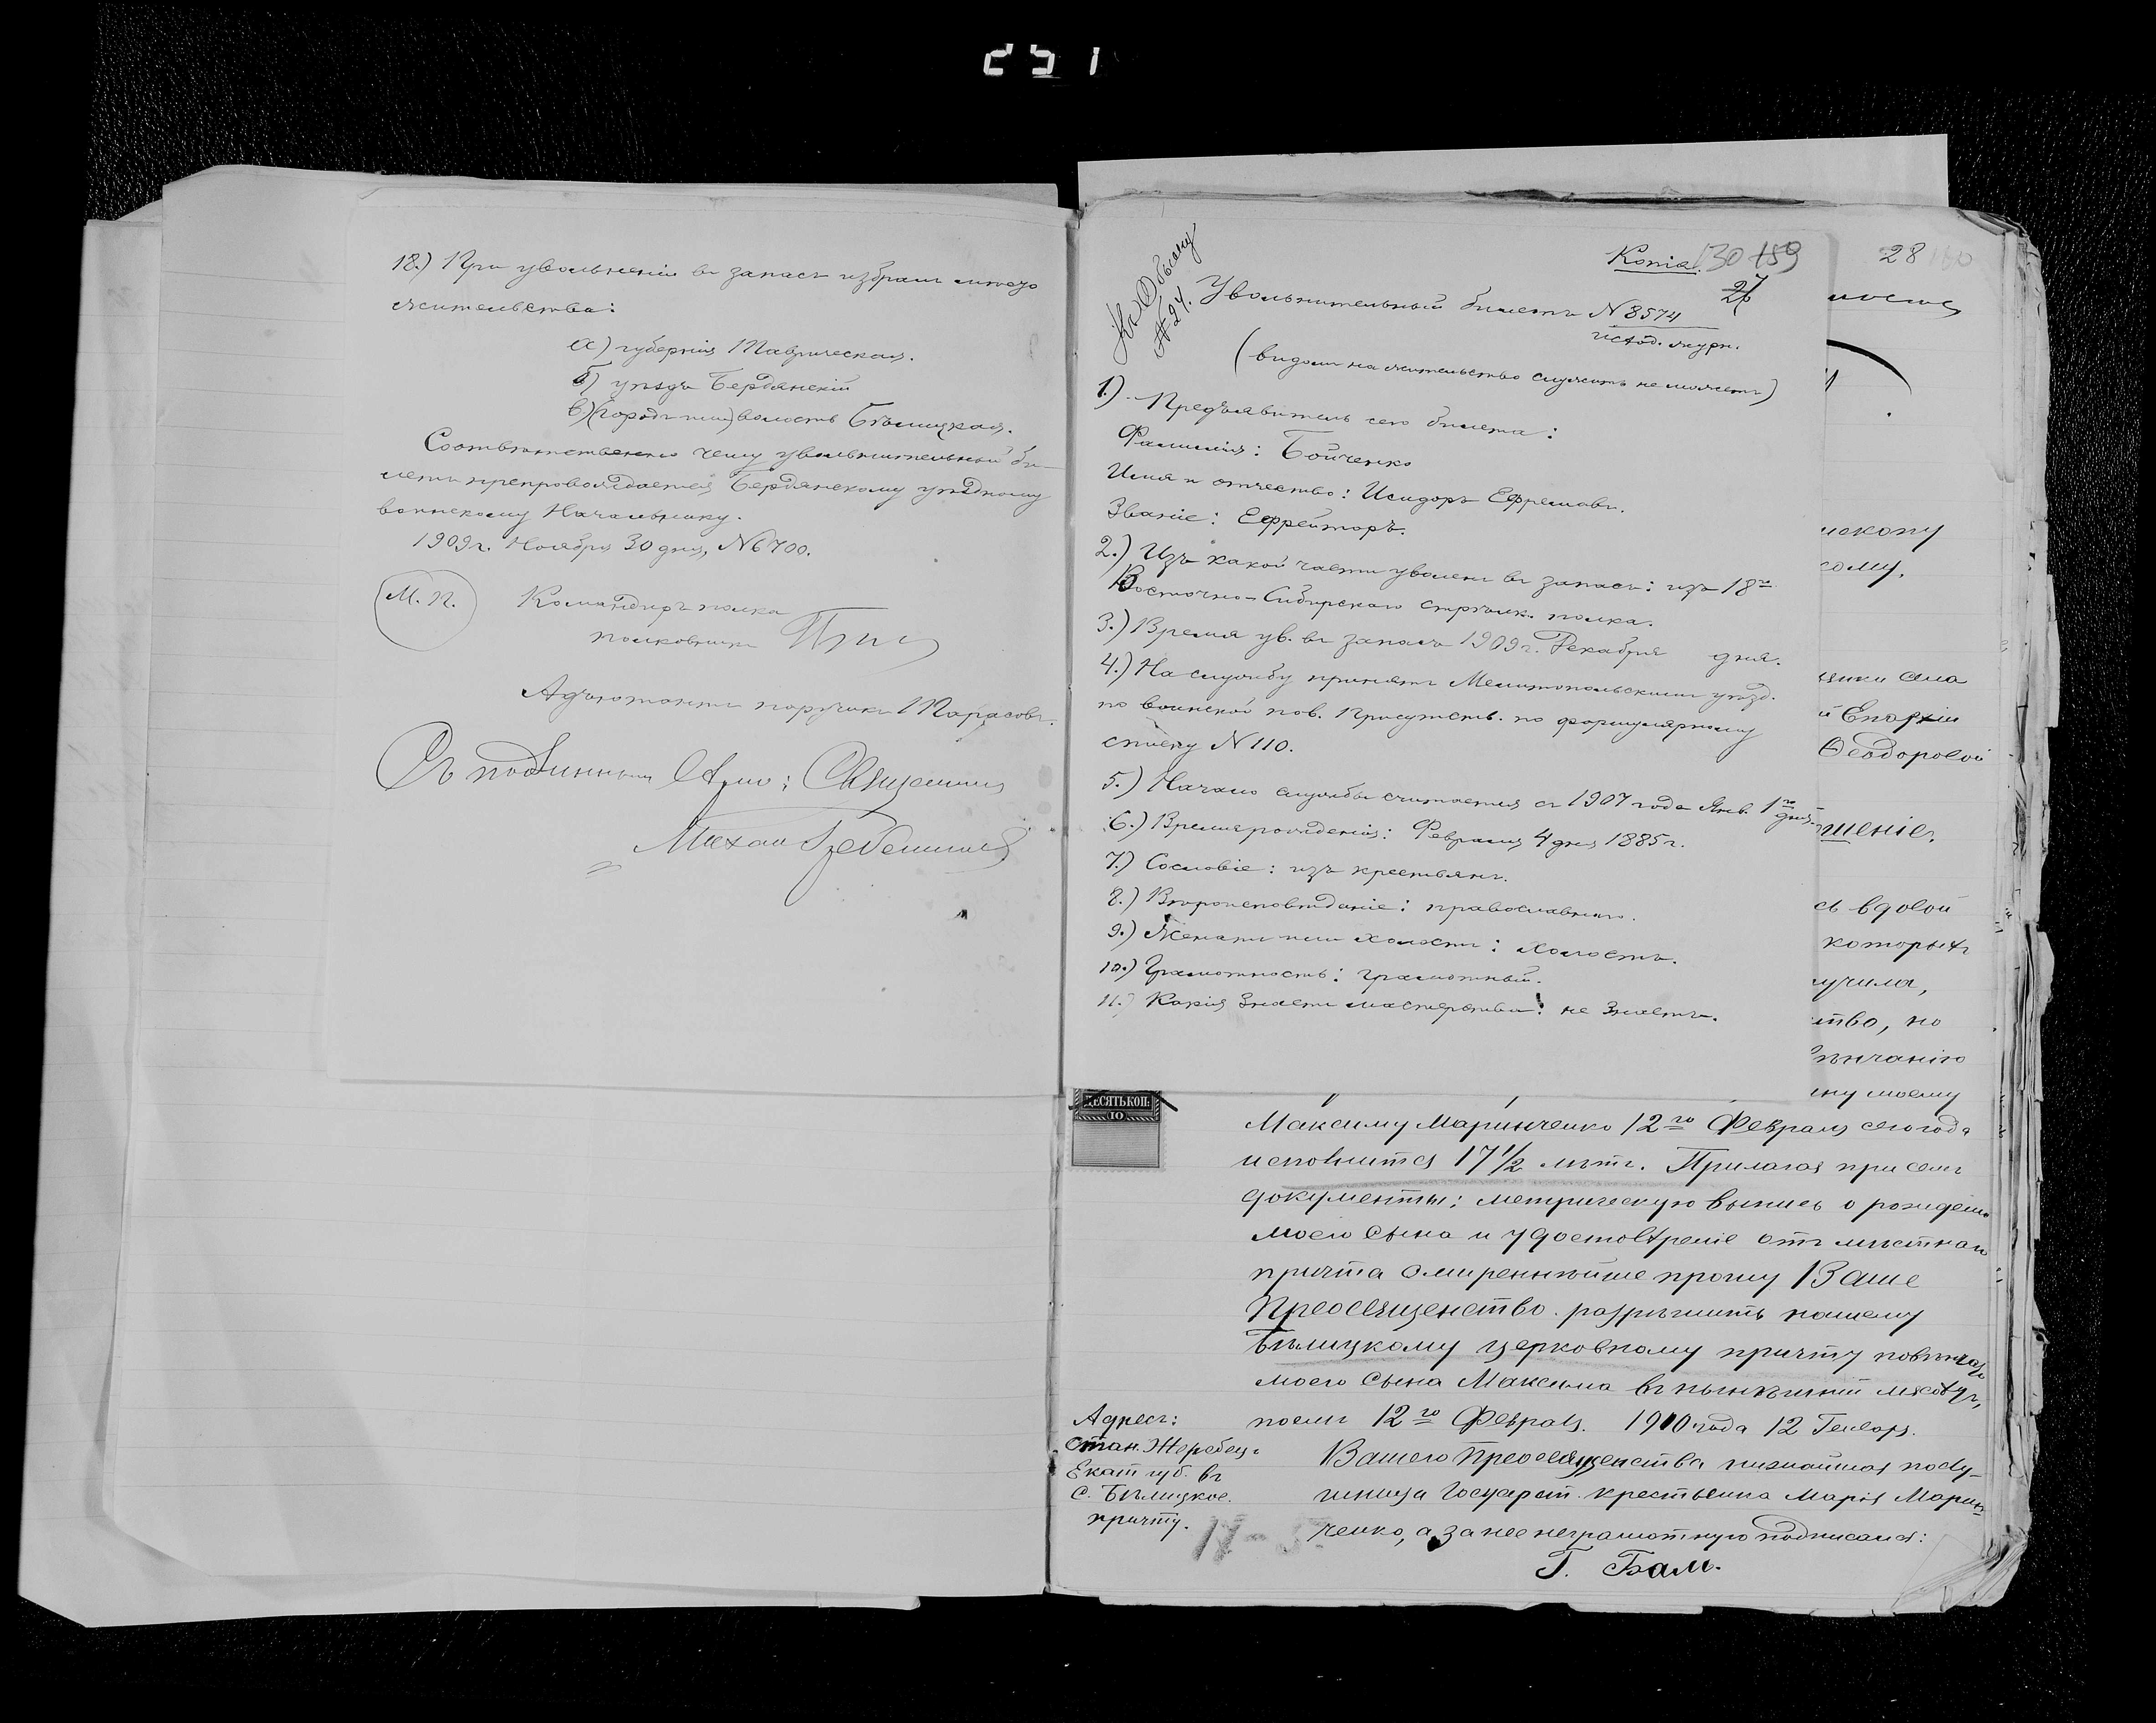 251
18.) При увольненіи въ запасъ избралъ мѣсто
жительства:
а) губернія Таврическая.
б) уѣздъ Бердянскій
в) (городъ или) волость Бѣлицкая.
Соотвѣтственно чему увольнительный би-
летъ препровождается Бердянскому уѣздному
воинскому Начальнику.
1909 г. Ноября 30 дня, № 6700.
М. П.
Командиръ полка
полковникъ
Адъютантъ поручикъ Тарасовъ.
Съ подлиннымъ вѣрно: Священникъ
Михаилъ
Къ Обыску
№ 24.
Копія 130 159
27
26
Увольнительный билетъ № 8574
исход. журн.
(видомъ на жительство служить не можетъ)
1.) Предъявитель сего билета:
Фамилія: Бойченко
Имя и отчество: Исидоръ Ефремовъ.
Званіе: Ефрейторъ.
2.) Изъ какой части уволенъ въ запасъ: изъ 18го
Восточно-Сибирскаго стрѣлк. полка.
3.) Время ув. въ запасъ 1909 г. Декабря дня.
4.) На службу принятъ Мелитопольскимъ уѣзд.
по воинской пов. Присутств. по формулярному
списку № 110.
5.) Начало службы считается съ 1907 года Янв. 1го дня.
6.) Время рожденія: Февраля 4 дня 1885 г.
7.) Сословіе: изъ крестьянъ.
8.) Вѣроисповѣданіе: православнаго.
9.) Женатъ или холостъ: холостъ.
10.) Грамотность: грамотный.
11.) Какія знаетъ мастерства: не знаетъ.
28
мскому
сому,
сына
й Епархіи
Ѳеодоровой
шеніе.
сь вдовой
которыхъ
лучила,
ство, но
ѣнчанію
ну моему
ДЕСЯТЬ КОП.
10
Максиму Маринченко 12го Февраля сего года
исполнится 17 1/2 лѣтъ. Прилагая при семъ
документы: метрическую выпись о рожденіи
моего сына и удостовѣреніе отъ мѣстнаго
причта смиреннѣйше прошу Ваше
Преосвященство разрѣшить нашему
Бѣлицкому церковному причту повѣнчать
моего сына Максима въ нынѣшній мясоѣдъ,
послѣ 12го Февраля. 1910 года 12 Генваря.
Вашего Преосвященства нижайшая послу-
шница Государст. крестьянка Марія Марин-
ченко, а за нее неграмотную подписался:
Г. Балъ.
Адресъ:
стан. Жеребецъ
Екат. губ. въ
с. Бѣлицкое.
причту.